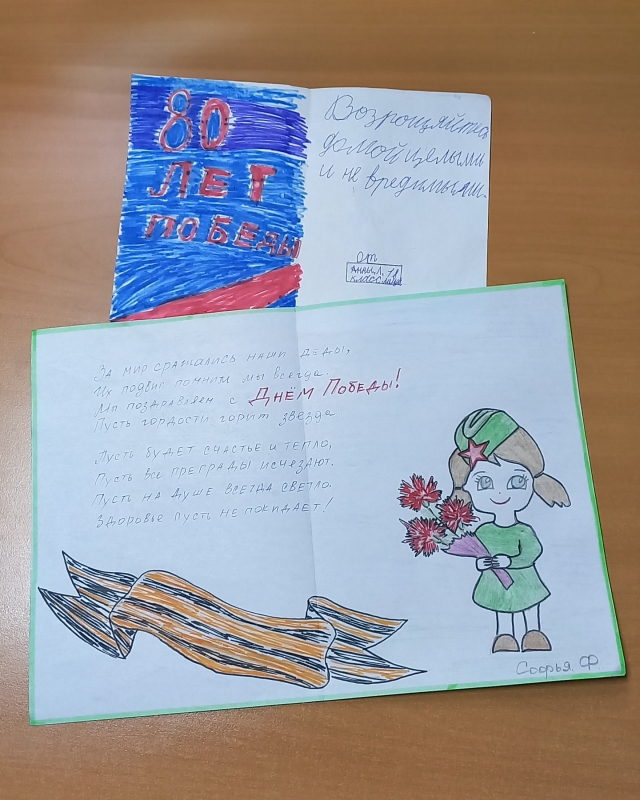 80
ЛЕТ
ПОБЕДЫ
Возрощяйтесь
домой целыми
и не вредимыми.
от
Анны Л.
класс
За мир сражались наши деды,
Их подвиг помним мы всегда.
Мы поздравляем с Днём Победы!
Пусть гордости горит звезда
Пусть будет счастье и тепло,
Пусть все преграды исчезают.
Пусть на душе всегда светло.
Здоровье пусть не покидает!
Софья. Ф.